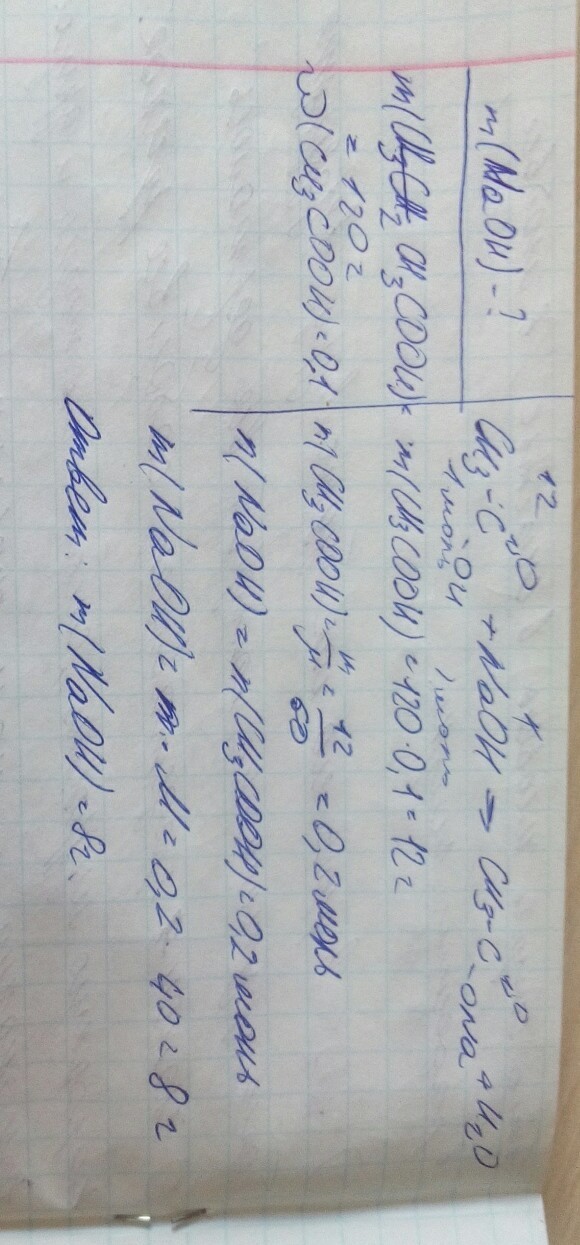 m(NaOH)-?
m(CH₃COOH)=
= 120 г
ω(CH₃COOH)=0,1
12
CH₃-C=O + NaOH → CH₃-C=O + H₂O
-OH -ONa
1 моль 1 моль
m(CH₃COOH) = 120·0,1 = 12 г
n(CH₃COOH) = m/M = 12/60 = 0,2 моль
n(NaOH) = n(CH₃COOH) = 0,2 моль
m(NaOH) = n·M = 0,2·40 = 8 г
Ответ: m(NaOH) = 8г.